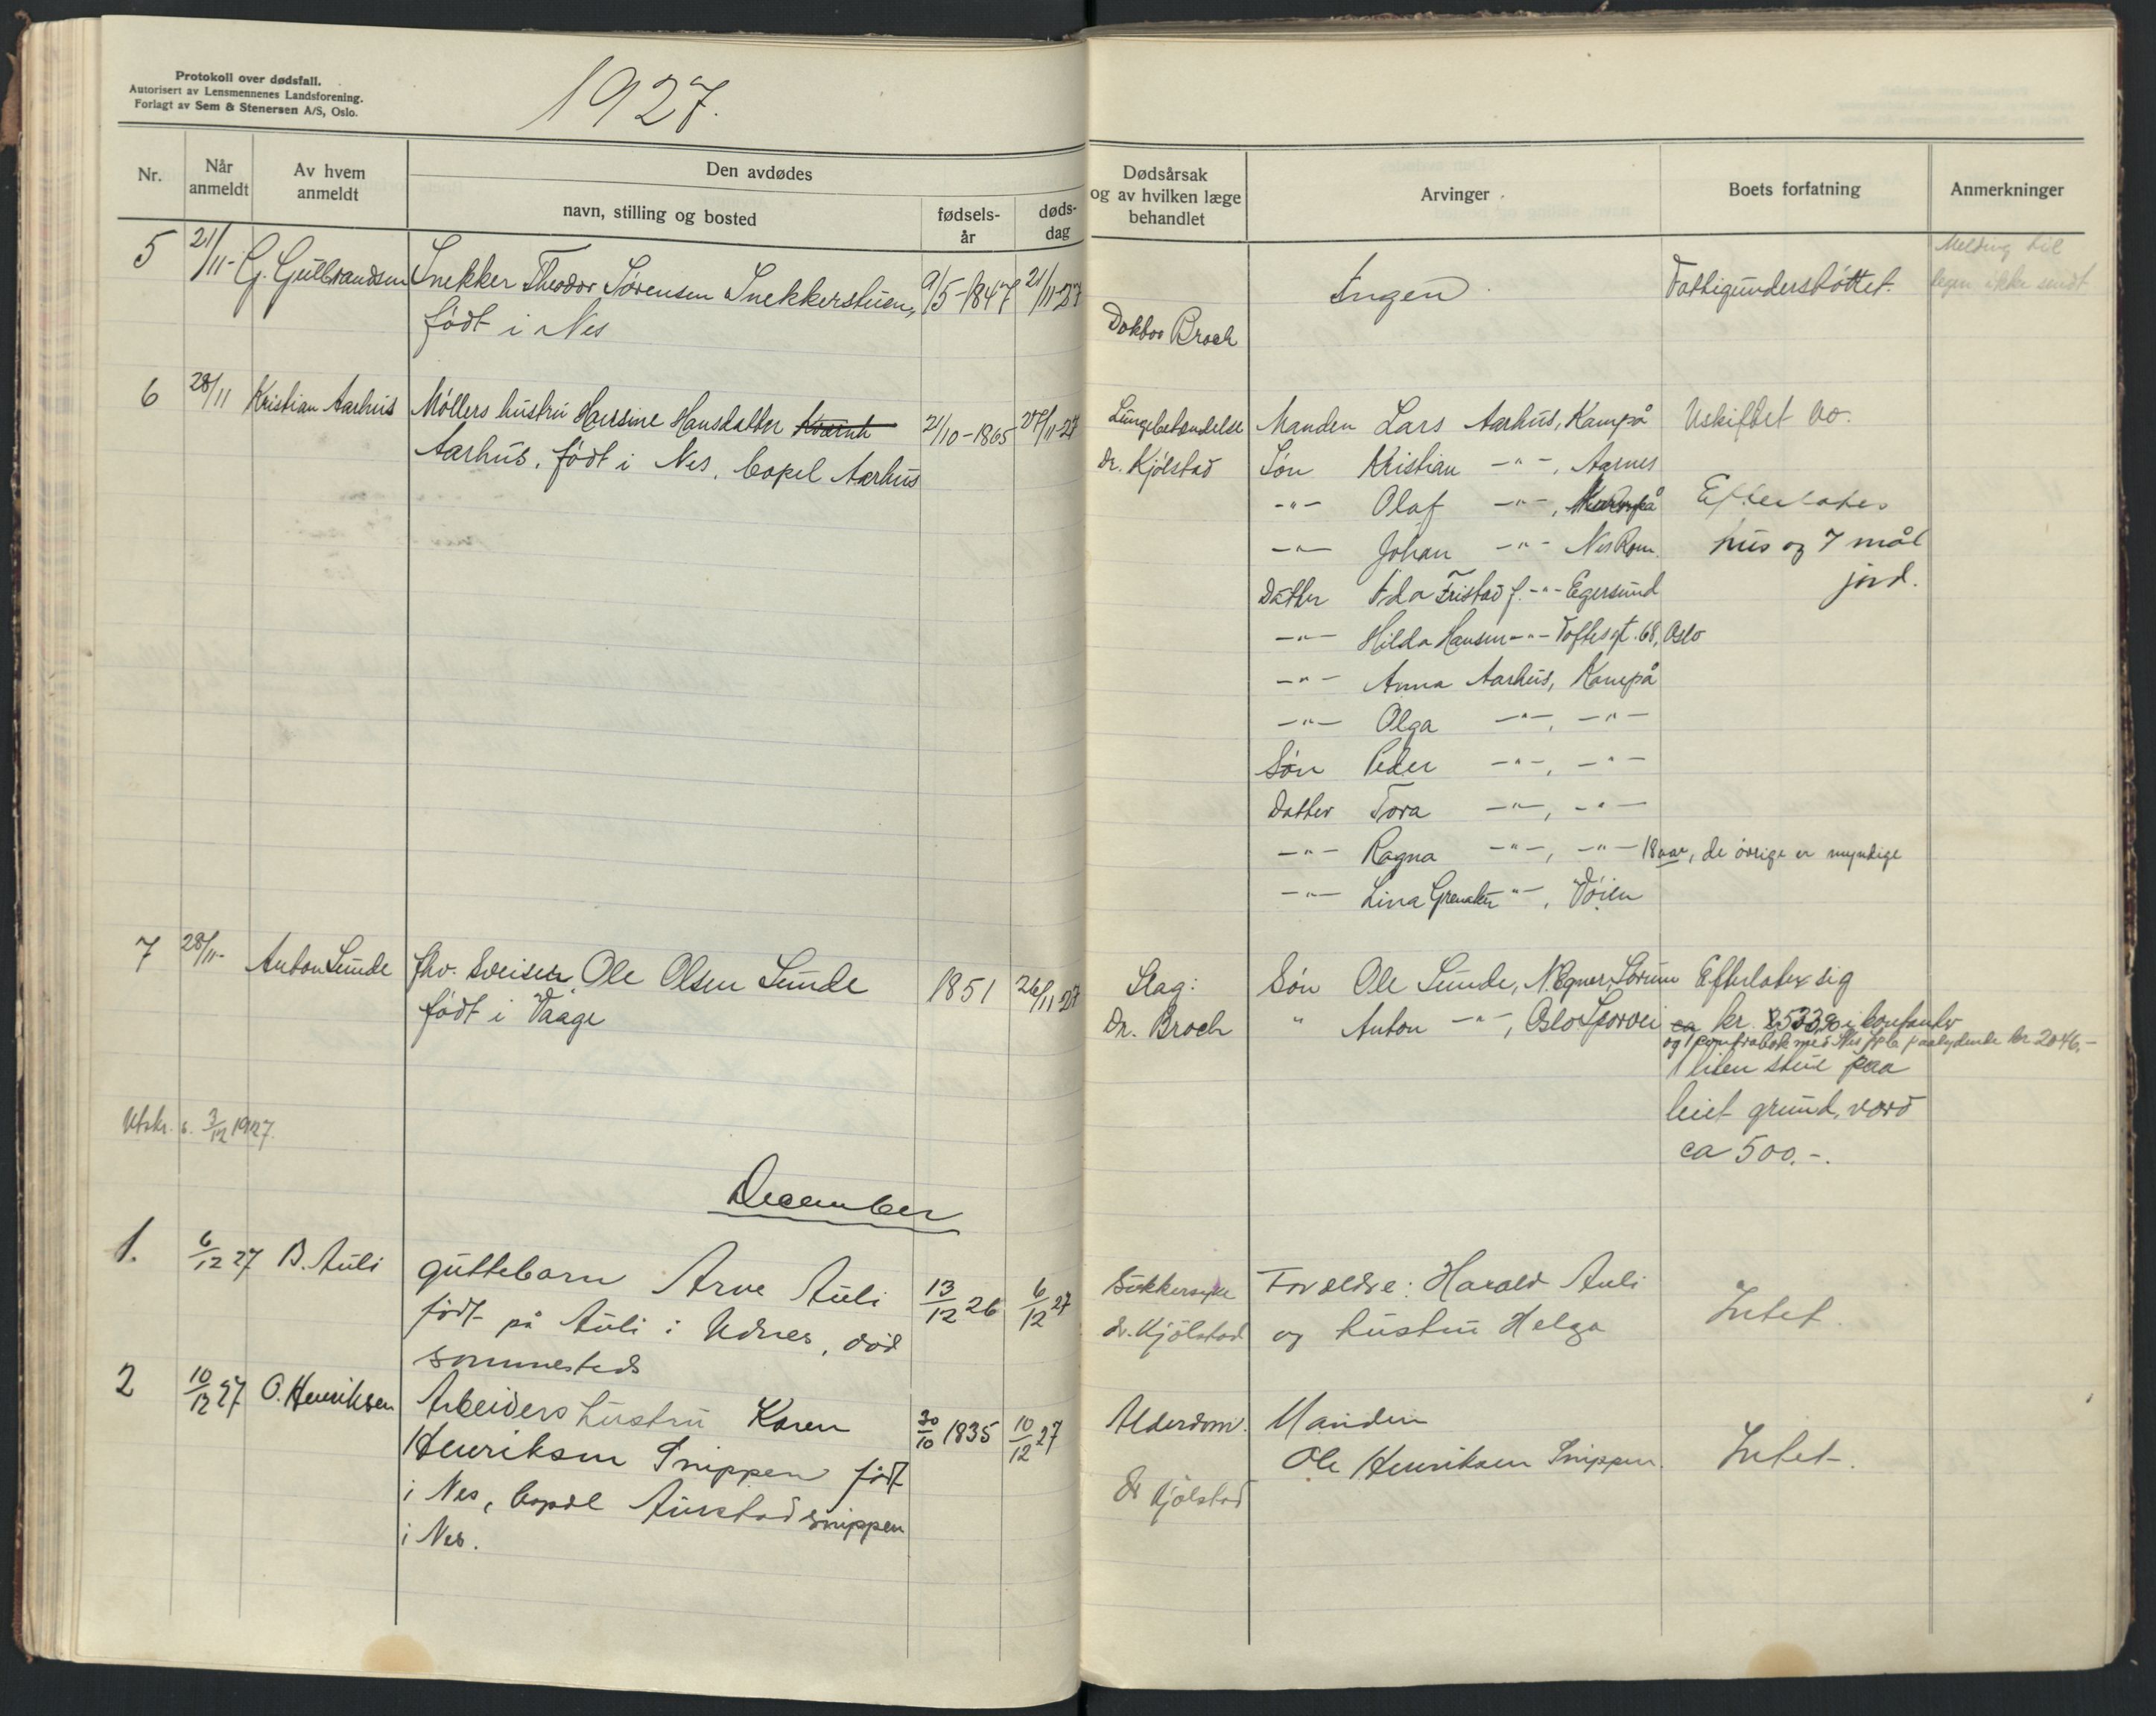 Protokoll over dødsfall.
Autorisert av Lensmennenes Landsforening.
Forlagt av Sem & Stenersen A/S, Oslo.
1927.
Nr.
Når anmeldt
Av hvem anmeldt
Den avdødes
navn, stilling og bosted
fødsels-
år
døds-
dag
Dødsårsak
og av hvilken læge
behandlet
Arvinger
Boets forfatning
Anmerkninger
5 21/11- G. Gulbrandsen Snekker Theodor Sørensen Snekkerstuen, 9/5-1847 21/11-27
født i Nes
Ingen
Fattigunderstøttet.
Melding til
legen ikke sendt
Doktor Broch
6 28/11 Kristian Aarhus Møllers hustru Hansine Hansdatter
Aarhus, født i Nes. bopel Aarhus
21/10-1865 27/11-27
Lungebetændelse
dr. Kjølstad
Manden Lars Aarhus, Kampå
Søn Kristian -"-, Aarnes
-"- Olaf -"-, Kampå
-"- Johan -"- Nes Rom.
Datter Ida Fristad f. -"- Egersund
-"- Hilda Hansen -"- Toftesgt. 68, Oslo
-"- Anna Aarhus, Kampå
-"- Olga -"-, -"-
Søn Peder -"-, -"-
Datter Tora -"-, -"-
-"- Ragna -"-, -"- 18 aar, de øvrige er myndige
-"- Lina -"-, Vøien
Uskiftet bo.
Efterlates
hus og 7 mål
jord.
7 28/11- Anton Sunde fhv. Sveiser Ole Olsen Sunde 1851 26/11 27
født i Vaage
Slag:
Dr. Broch
Søn Ole Sunde, N. Egner, Sørum
" Anton -"-, Oslo Sporvei
Efterlater sig
ca kr. i kontanter
og 1 kontrabok med Nes paalydende kr 2046.-
1 liten stue paa
leiet grund, værd
ca 500.-.
Utskr. s. 3/12 1927.
December
1. 6/12 27 B. Auli guttebarn Arve Auli 13/12 26 6/12 27
født på Auli i Udnes, død
sammesteds
Sukkersyke
dr. Kjølstad
Forældre: Harald Auli
og hustru Helga
Intet.
2 10/12 27 O. Henriksen Arbeiders hustru Karen 30/10 1835 10/12 27
Henriksen Snippen født
i Nes, bopæl Aurstad snippen
i Nes.
Alderdom.
Dr Kjølstad
Manden
Ole Henriksen Snippen.
Intet.